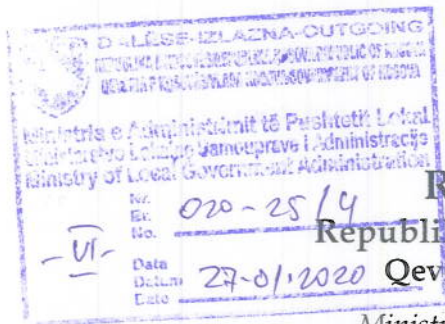 D -LËSE-IZLAZNA-OUTGOING
Ministria e Administrimit të Pushtetit Lokal
Ministarstvo Lokalne Samouprave i Administracije
Ministry of Local Government Administration
R
Nr.
Br.
No. 020-25/4
Republi
-VI-
Data
Datum
Date 27-01.2020
Qev
Minist